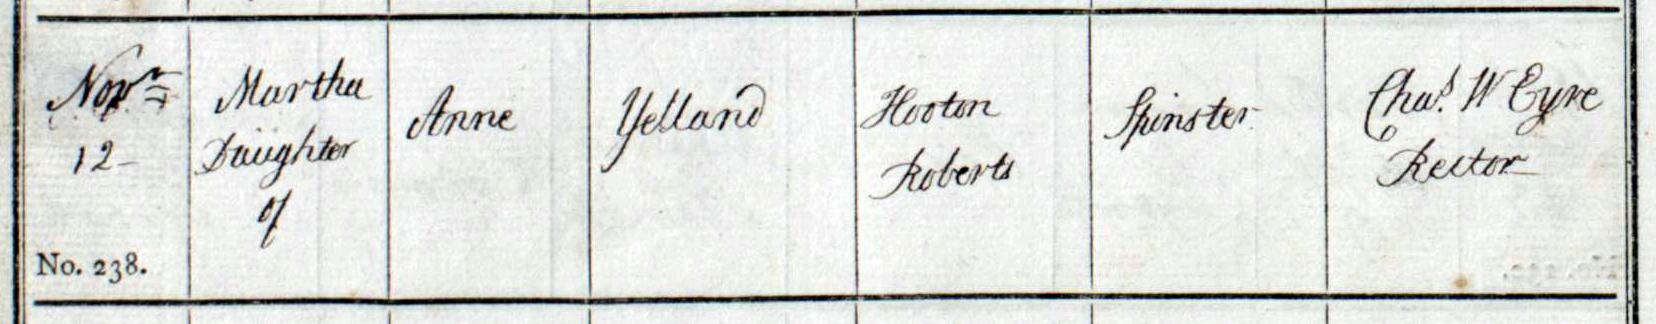 Novr
12
No. 238.
Martha
Daughter
of
Anne
Yelland
Hooton
Roberts
Spinster
Chas. W Eyre
Rector